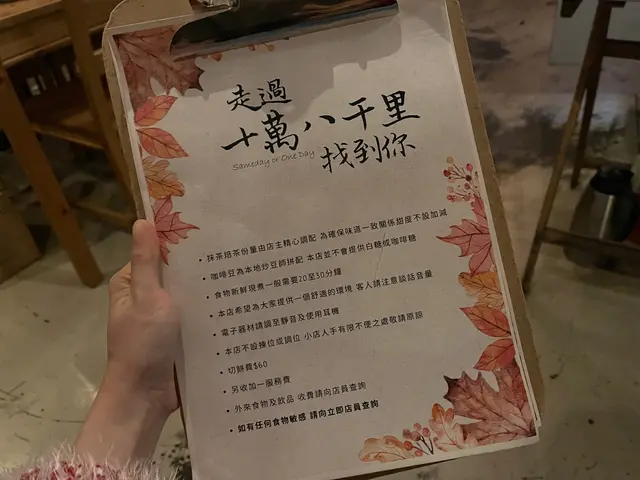 走過
十萬八千里
找到你
Sameday or One Day
• 抹茶焙茶份量由店主精心調配 為確保味道一致關係甜度不設加減
• 咖啡豆為本地炒豆師拼配 本店並不會提供白糖或咖啡糖
• 食物新鮮現煮一般需要20至30分鐘
• 本店希望為大家提供一個舒適的環境 客人請注意談話音量
• 電子器材請調至靜音及使用耳機
• 本店不設揀位或調位 小店人手有限不便之處敬請原諒
• 切餅費$60
• 另收加一服務費
• 外來食物及飲品 收費請向店員查詢
• 如有任何食物敏感 請向立即店員查詢